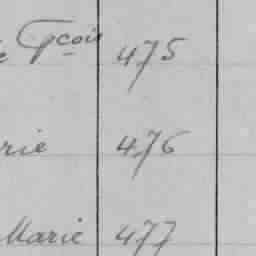 Fçois 475
rie 476
Marie 477